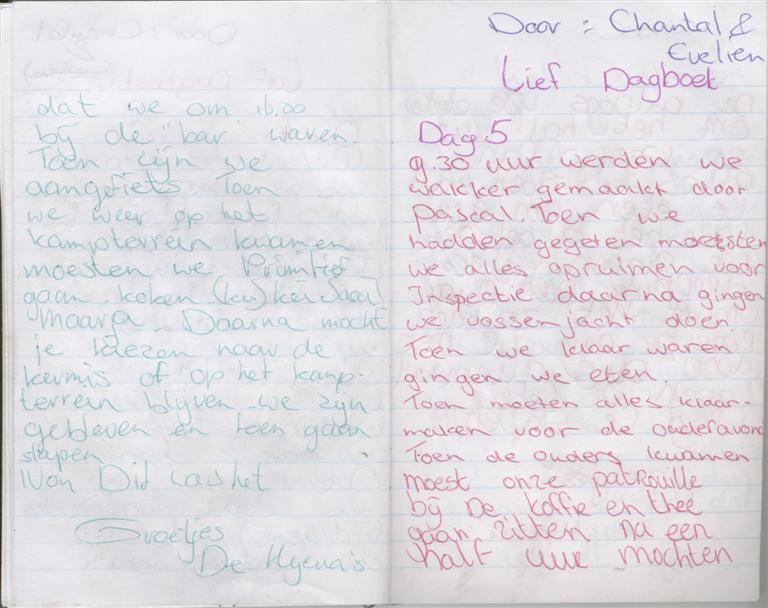 dat we om 16.00
bij de "bar" waren.
Toen zijn we
aangefiets. Toen
we weer op het
kampterrein kwamen
moesten we Primitief
gaan koken (kei) kei saai
maarja. Daarna mocht
je kiezen naar de
kermis of op het kamp-
terrein blijven we zijn
gebleven en toen gaan
slapen
Nou Dit was het
Groetjes
De Hyena's
Door : Chantal &
Evelien
Lief Dagboek
Dag 5
9.30 uur werden we
wakker gemaakt door
Pascal. Toen we
hadden gegeten moesten
we alles opruimen voor
Inspectie daarna gingen
we vossenjacht doen.
Toen we klaar waren
gingen we eten.
Toen moeten alles klaar-
maken voor de ouderavond
Toen de ouders kwamen
moest onze patrouille
bij De koffie en thee
gaan zitten na een
half uur mochten